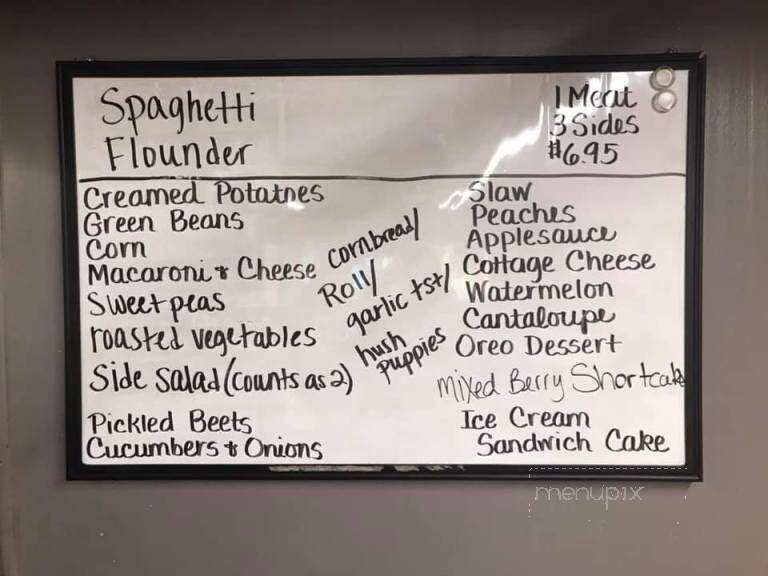 Spaghetti
Flounder
1 Meat
3 Sides
$6.95
Creamed Potatoes
Green Beans
Corn
Macaroni & Cheese
Sweet peas
roasted vegetables
Side Salad (counts as 2)
Pickled Beets
Cucumbers & Onions
cornbread/
Roll/
garlic tst/
hush
puppies
Slaw
Peaches
Applesauce
Cottage Cheese
Watermelon
Cantaloupe
Oreo Dessert
Mixed Berry Shortcake
Ice Cream
Sandwich Cake
menupix